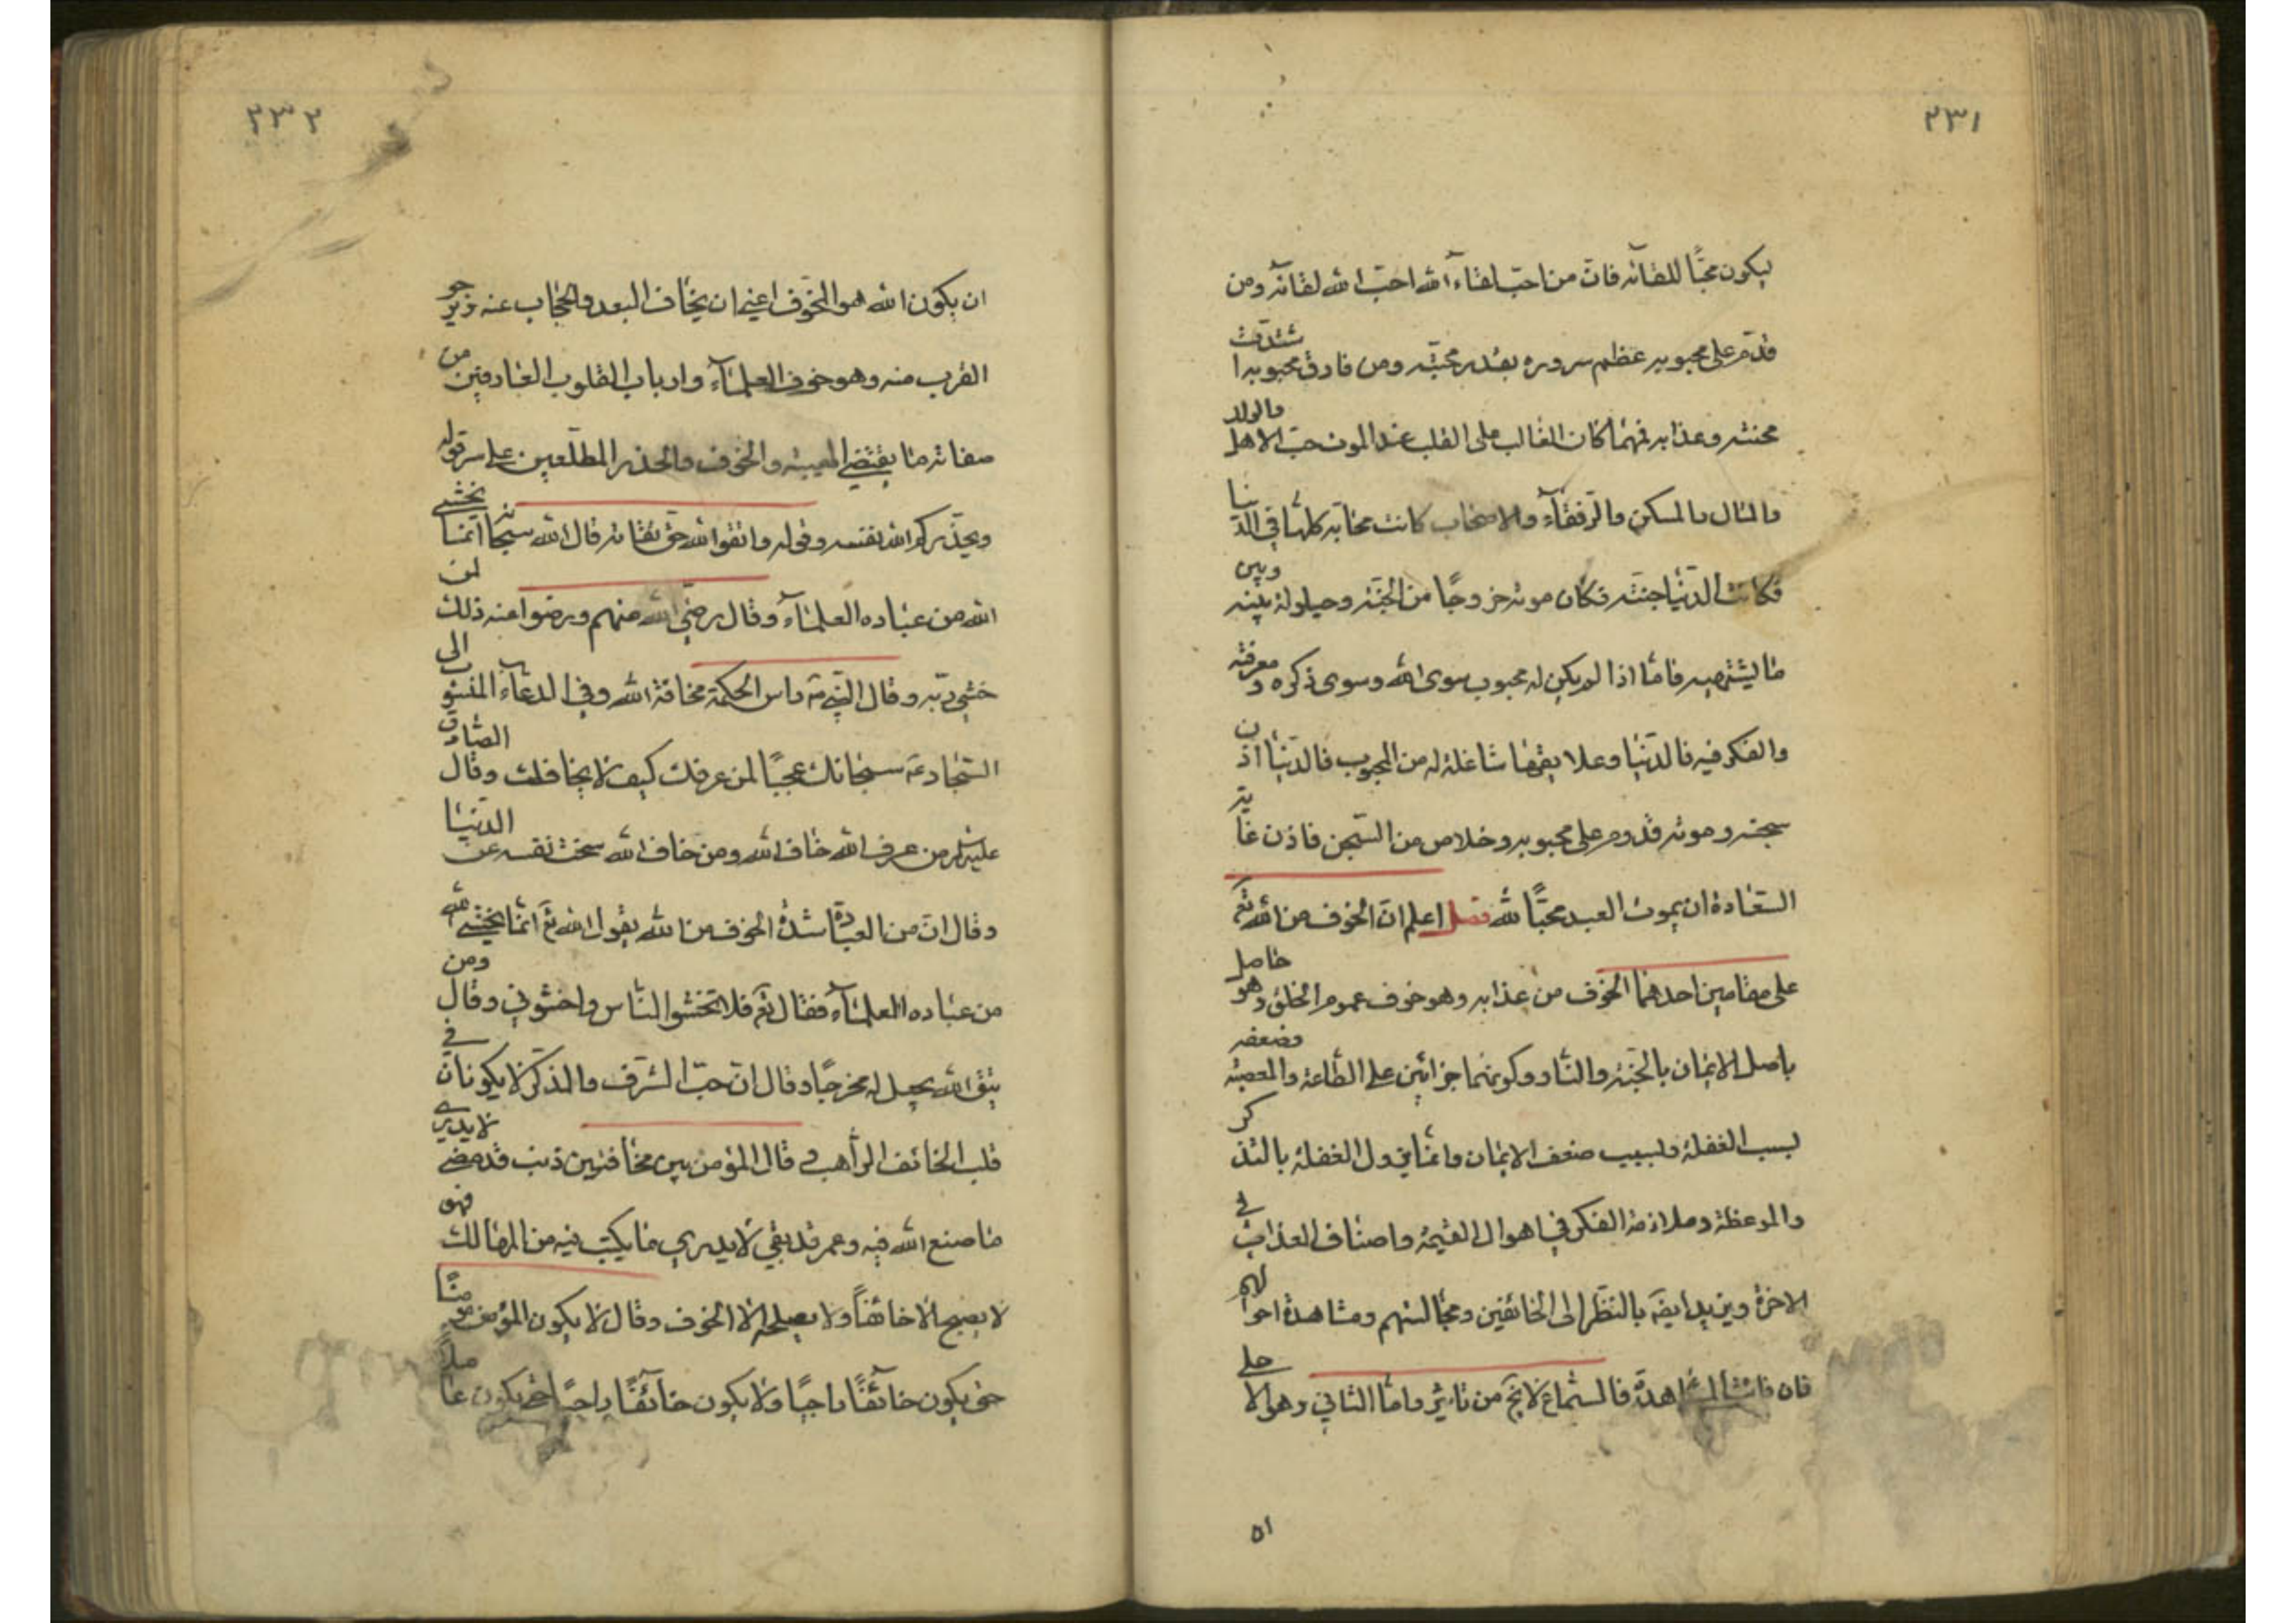 ٣٣١
ليكون محبّا للقائه فانّ من احبّ لقاءَ الله احبّ الله لقائه ومن
قدم على محبوبه عظم سروره بقدر محبّته ومن فارق محبوبه اشتدّت
محنته وعذابه فمهما كان الغالب على القلب عند الموت حبّ الاهل والولد
والمال والمسكن والرّفقاء والاصحاب كانت محابّه كلها في الدّنيا
فكانت الدّنيا جنته فكان موته خروجًا من الجنّة وحيلولة بينه وبين
ما يشتهيه فامّا اذا لم يكن له محبوب سوى الله وسوى ذكره ومعرفته
والفكر فيه فالدّنيا وعلايقها شاغلة له من المحبوب فالدّنيا اذن
سجنه وموته قدوم على محبوبه وخلاص من السّجن فاذن غاية
السّعادة ان يموت العبد محبّا لله فصل اعلم انّ الخوف من الله تع
على مقامين احدهما الخوف من عذابه وهو خوف عموم الخلق وهو حاصل
باصل الايمان بالجنّة والنّار وكونهما جزائين على الطّاعة والمعصية وضعفه
بسبب الغفلة ولسبب ضعف الايمان وانّما يزول الغفلة بالتذكر
والموعظة وملازمة الفكر في اهوال القيمة واصناف العذاب في
الاخرة ويزيد ايضَ بالنّظر الى الخائفين ومجالستهم ومشاهدة احوالهم
فان فاتت المشاهدة فالسّماع لا يخ من تاثير وامّا الثاني وهو الاعلى
٥١
٣٣٢
ان يكون الله هو المخوّف اعني ان يخاف البعد والحجاب عنه ويرجو
القرب منه وهو خوف العلماء وارباب القلوب العارفين من
صفاته ما يقتضي الهيبة والخوف والحذر المطّلعين على سر قوله
ويحذّركم الله نفسه وقوله واتقوا الله حق تقاته قال الله سبحانه انّما يخشى
الله من عباده العلماء وقال رضي الله عنهم ورضوا عنه ذلك لمن
خشي ربّه وقال النّبي ص راس الحكمة مخافة الله وفي الدعاء المنسوب الى
السّجاد ع سبحانك عجبًا لمن عرفك كيف لا يخافك وقال الصّادق
عليه السلم من عرف الله خاف الله ومن خاف الله سخت نفسه عن الدّنيا
وقال انّ من العبادة شدة الخوف من الله يقول الله تع انّما يخشى الله
من عباده العلماء فقال تع فلا تخشوا النّاس واخشوني وقال ومن
يتّق الله يجعل له مخرجًا وقال انّ حبّ الشرف والذكر لا يكونان في
قلب الخائف الرّاهب و قال المؤمن بين مخافتين ذنب قد مضى لا يدري
ما صنع الله فيه وعمر قد بقي لا يدري ما يكتب فيه من المهالك فهو
لا يصبح الا خائفاً ولا يصلحه الا الخوف وقال لا يكون المؤمن مؤمنًا
حتى يكون خائفًا راجيًا ولا يكون خائفًا راجيًا حتى يكون عاملًا